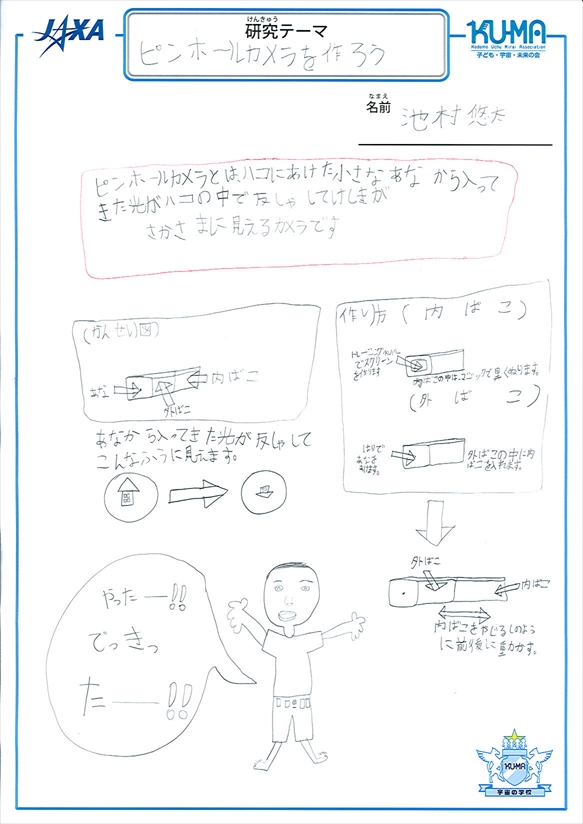 JAXA
けんきゅう
研究テーマ
ピンホールカメラを作ろう
KUMA
Kodomo Uchu Mirai Association
子ども・宇宙・未来の会
なまえ
名前 池村 悠太
ピンホールカメラとは、ハコにあけた小さな あな から入って
きた光がハコの中で反しゃ してけしきが
さかさ まに見えるカメラです
(かん せい図)
あな
内ばこ
外ばこ
あなから入ってきた光が反しゃして
こんなふうに見えます。
作り方 (内 ばこ)
トレーシングペーパー
でスクリーン
を作ります
内ばこの中は、マジックで黒くぬります。
(外 ば こ)
はりで
あなを
あけます。
外ばこの中に内
ばこを入れます。
外ばこ
内ばこ
内ばこをやじるしのよう
に前後に動かす。
やったー!!
でっきっ
たー!!
KUMA
宇宙の学校